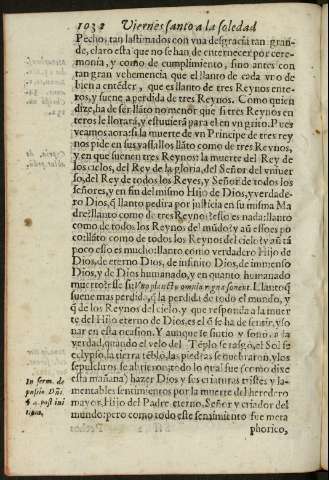 1032 Viernes santo a la soledad
Pecho, tan lastimado con vna desgracia tan gran-
de, claro esta que no se han de enternecer por cere-
monia, y como de cumplimiento, sino antes con
tan gran vehemencia que el llanto de cada vno de
bien a entẽder, que es llanto de tres Reynos ente-
ros, y suene a perdida de tres Reynos. Como quien
dize, ha de ser llãto no menor que si tres Reynos en
teros le lloraràn, y estuuierã para el en vn grito. Pues
veamos aora: si la muerte de vn Principe de tres rey
nos pide en sus vassallos llãto como de tres Reynos,
y en que suenen tres Reynos: la muerte del Rey de
los cielos, del Rey de la gloria, del Señor del vniuer
so, del Rey de todos los Reyes, y Señor de todos los
señores, y en fin del mismo Hijo de Dios, y verdade-
ro Dios, q̃ llanto pedira por justicia en su misma Ma
dre? llanto como de tres Reynos? esso es nada: llanto
como de todos los Reynos del mũdo? y aũ esso es po
co: llãto como de todos los Reynos del cielo? y aũ tã
poco esso es mucho: llanto como verdadero Hijo de
Dios, de eterno Dios, de infinito Dios, de immenso
Dios, y de Dios humanado, y en quanto humanado
muerto: esse si: Vno planctu omnia regna sonent. Llanto q̃
suene mas perdida, q̃ la perdida de todo el mundo, y
q̃ de los Reynos del cielo, y que responda a la muer
te del Hijo eterno de Dios, es el q̃ se ha de sentir, y so
nar en esta ocasion. Y aunque se sintio y sono, a la
verdad, quando el velo del Tẽplo se rasgò, el Sol se
eclypsò, la tierra tẽblò, las piedras se quebraron, y los
sepulcros se abrieron: todo lo qual fue (como dixe
esta mañana) hazer Dios y sus criaturas tristes y la-
mentables sentimientos por la muerte del heredero
mayor, Hijo del Padre eterno, Señor y criador del
mundo: pero como todo este sentimiento fue meta
phorico,
In serm. de
passio. Dñi